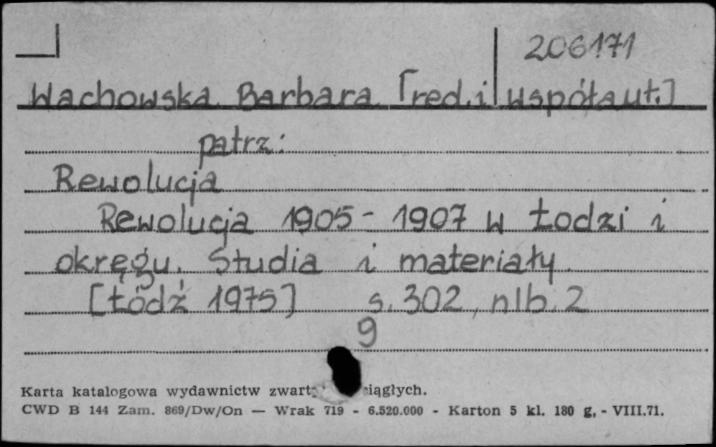 206171
Wachowska Barbara [red. i współaut.]
patrz:
Rewolucja
Rewolucja 1905 - 1907 w Łodzi i
okręgu. Studia i materiały.
[Łódź 1975] s. 302, nlb. 2
9
Karta katalogowa wydawnictw
CWD B 144 Zam. 869/Dw/On — Wrak 719 - 6.520.000 - Karton 5 kl. 180 g, - VIII.71.